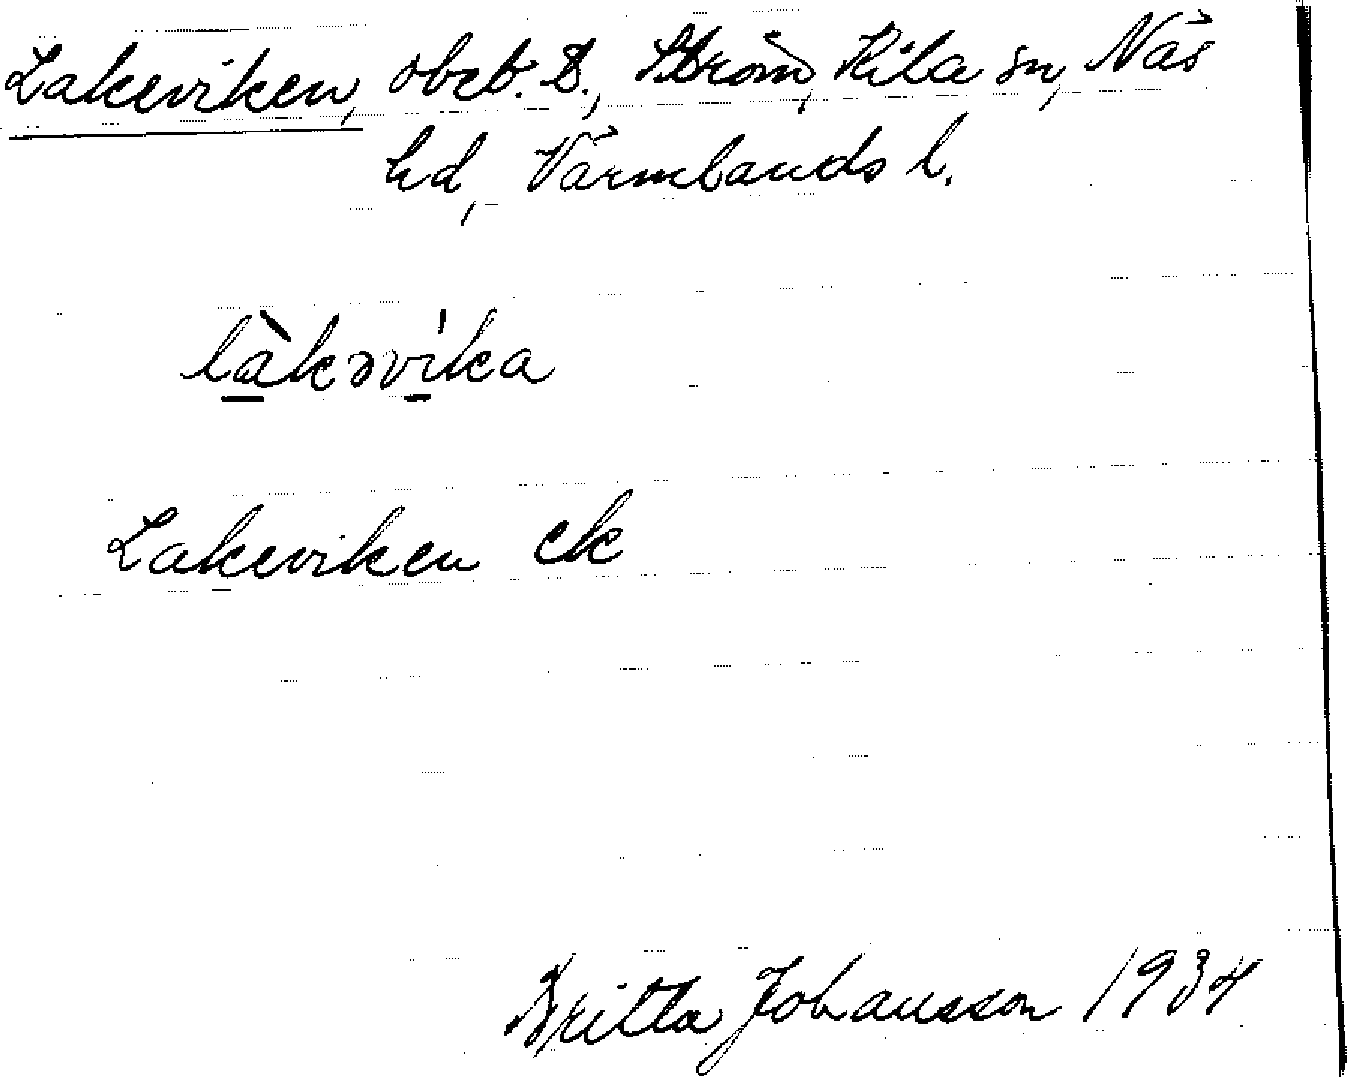 Lakeviken, obeb. D., Ström, Kila sn, Näs
hd, Värmlands l.
làkəvi'ka
Lakeviken ek
Britta Johansson 1934